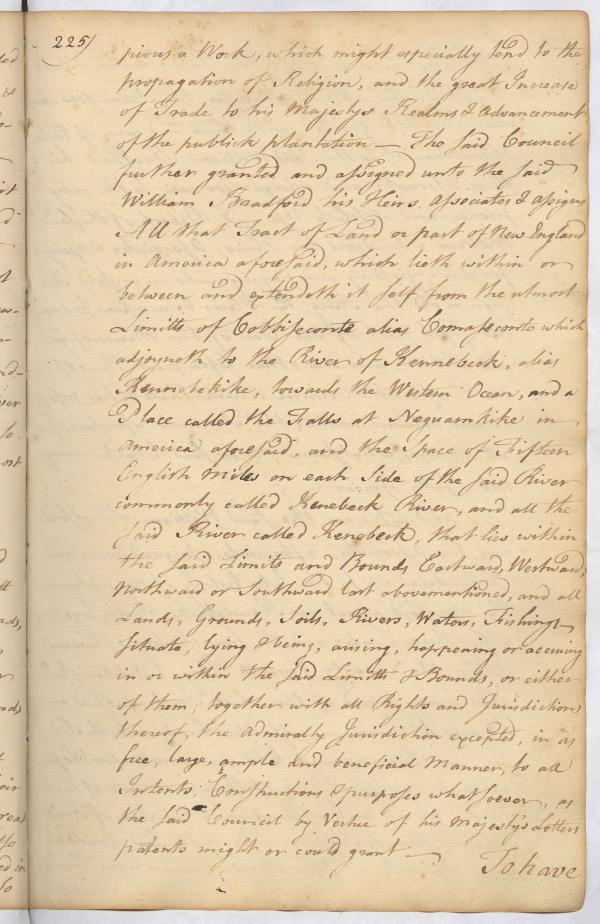 225)
pious a Work, which might especially tend to the
propagation of Religion, and the great Increase
of Trade to his Majestys Realms & advancement
of the publick plantation — The said Council
further granted and assigned unto the said
William Bradford his Heirs, associates & assigns
All that Tract of Land or part of New England
in America aforesaid, which lieth within or
between and extendeth it self from the utmost
Limitts of Cobbiseconte alias Comaseconte which
adjoyneth to the River of Kennebeck, alias
Kennebekike, towards the Western Ocean, and a
Place called the Falls at Neguamkike in
America aforesaid, and the Space of Fifteen
English Miles on each Side of the said River
commonly called Kenebeck River, and all the
said River called Kenebeck, that lies within
the said Limits and Bounds Eastward, Westward,
Northward or Southward last abovementioned, and all
Lands, Grounds, Soils, Rivers, Waters, Fishings
situate, lying & being, arising, happening or accruing
in or within the said Limitts & Bounds, or either
of them, together with all Rights and Jurisdictions
thereof, the admiralty Jurisdiction excepted, in as
free, large, ample and beneficial Manner, to all
Intents, Constructions & purposes whatsoever, as
the said Council by Vertue of his Majesty's Letters
patents might or could grant —
To have